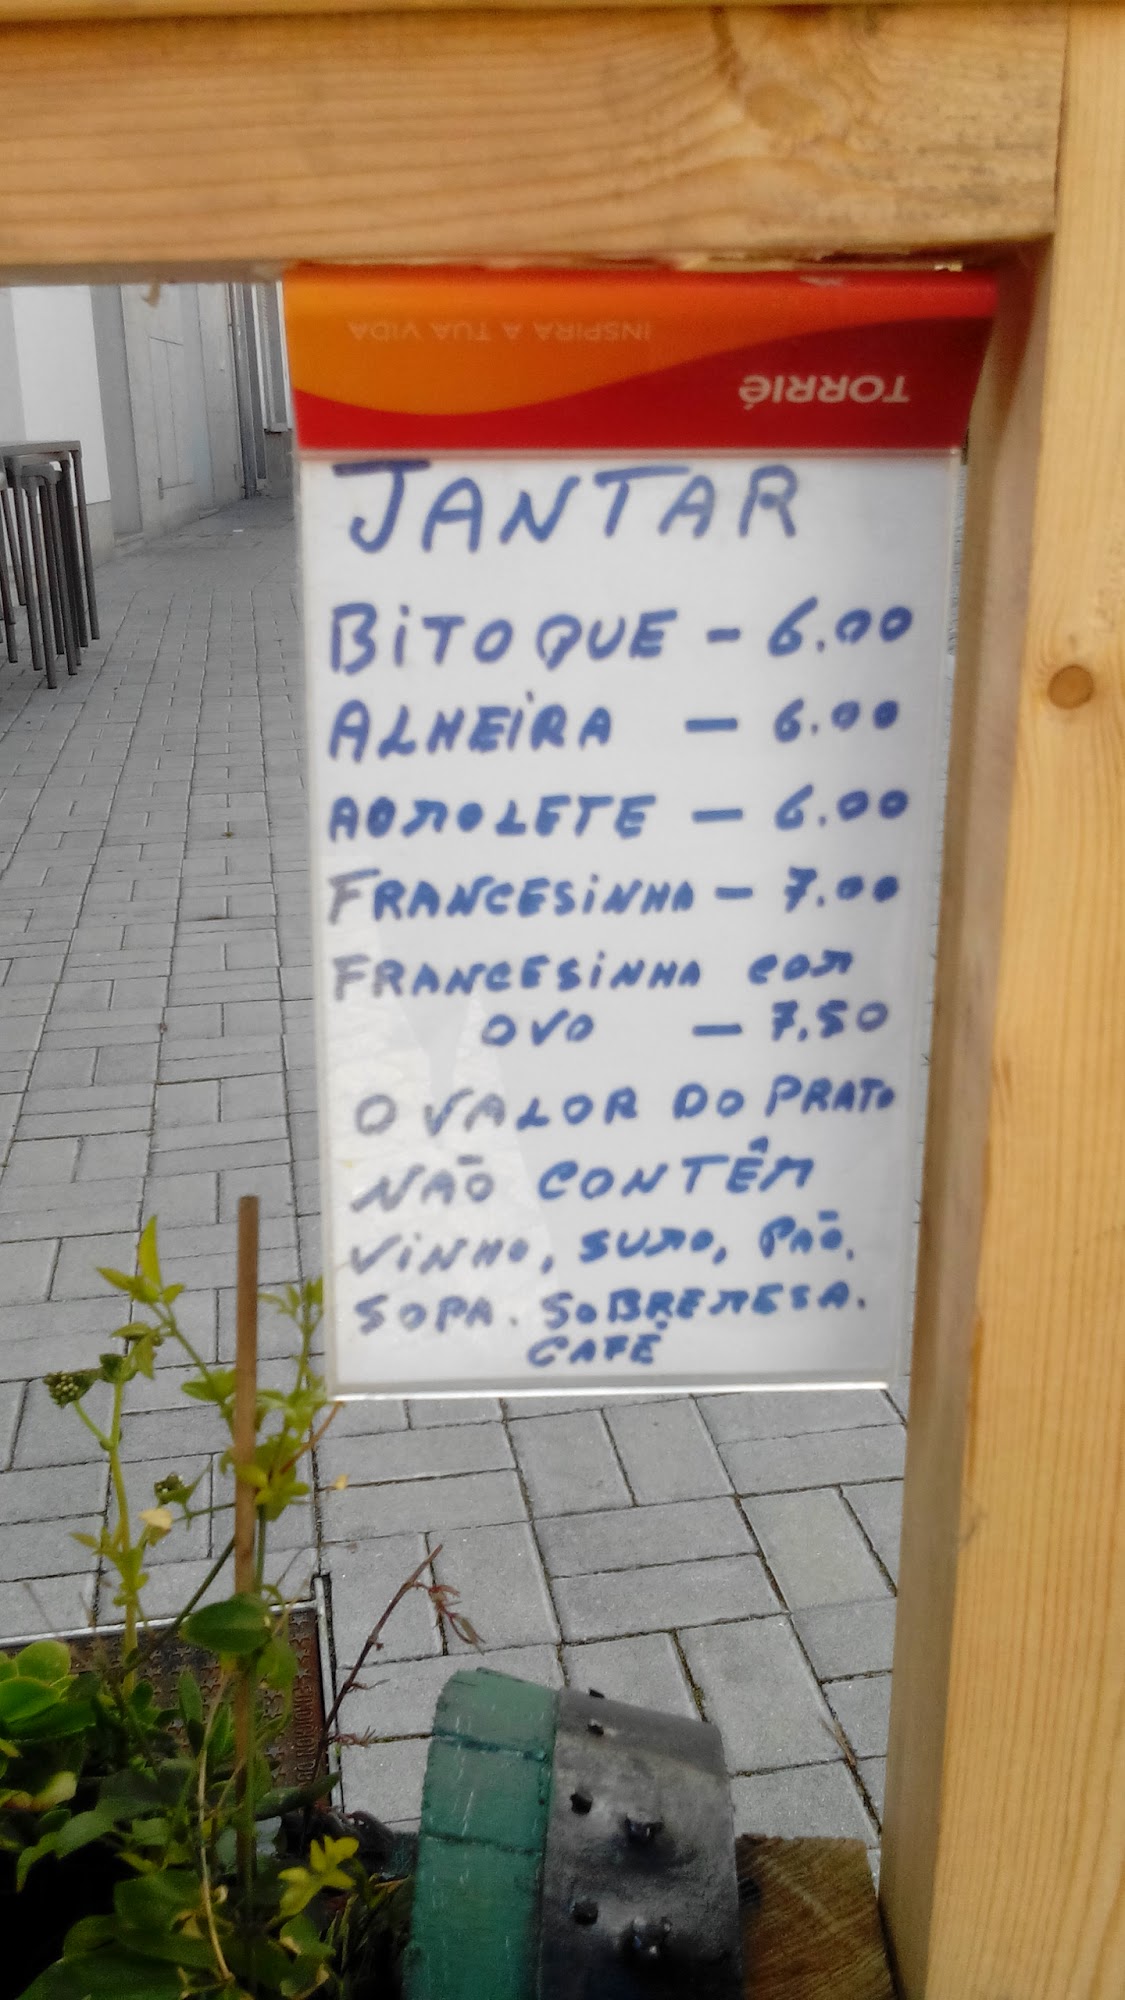 INSPIRA A TUA VIDA
TORRIÉ
JANTAR
BiTOQUE - 6.00
ALHEiRA - 6.00
AOMOLETE - 6.00
FRANCESiNHA - 7.00
FRANCESiNHA COM
OVO - 7,50
O VALOR DO PRATO
NÃO CONTÊM
ViNHO, SUMO, PÃO.
SOPA. SOBREMESA.
CAFÉ